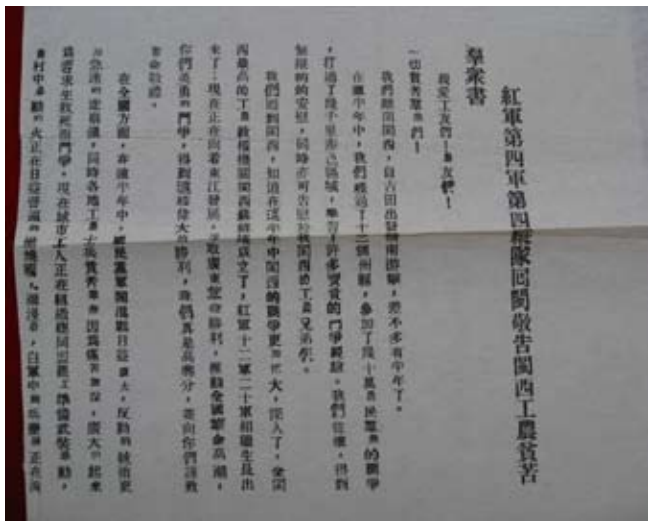 紅軍第四軍第四縱隊回閩敬告閩西工農貧苦
羣衆書
親愛工友們！農友們！
一切貧苦羣衆們！
我們離開閩西，自古田出發開始游擊，差不多有半年了。
在這半年中，我們經過了十二個州縣，參加了幾十萬農民羣衆的鬭爭
，打過了幾千里赤色區域，學習了許多寶貴的鬥爭經驗。我們這樣，得到
無限的安慰，同時亦可告慰於我閩西的工農兄弟們。
我們回到閩西，知道在這半年中閩西的鬭爭更加擴大，深入了，全閩
西最高的工農政權機關閩西蘇維埃成立了，紅軍十二軍二十軍相繼生長出
來了，現在正在向着東江發展，爭取廣東整個勝利，推動全國革命高潮，
你們是勇敢的鬥爭，得到這樣偉大的勝利，我們真是高興萬分，並向你們致
革命敬禮。
在全國方面，在這半年中，國民黨軍閥混戰日益擴大，反動的統治更
加急速的走崩潰，同時各地工農士兵貧苦羣衆因爲痛苦加深，廣大的起來
爲着求生死而鬥爭，現在城市工人正在組織總同盟罷工準備武裝暴動，
農村中暴動的火正在日益普遍的燃燒着，瀰漫着，白軍中的兵變正在